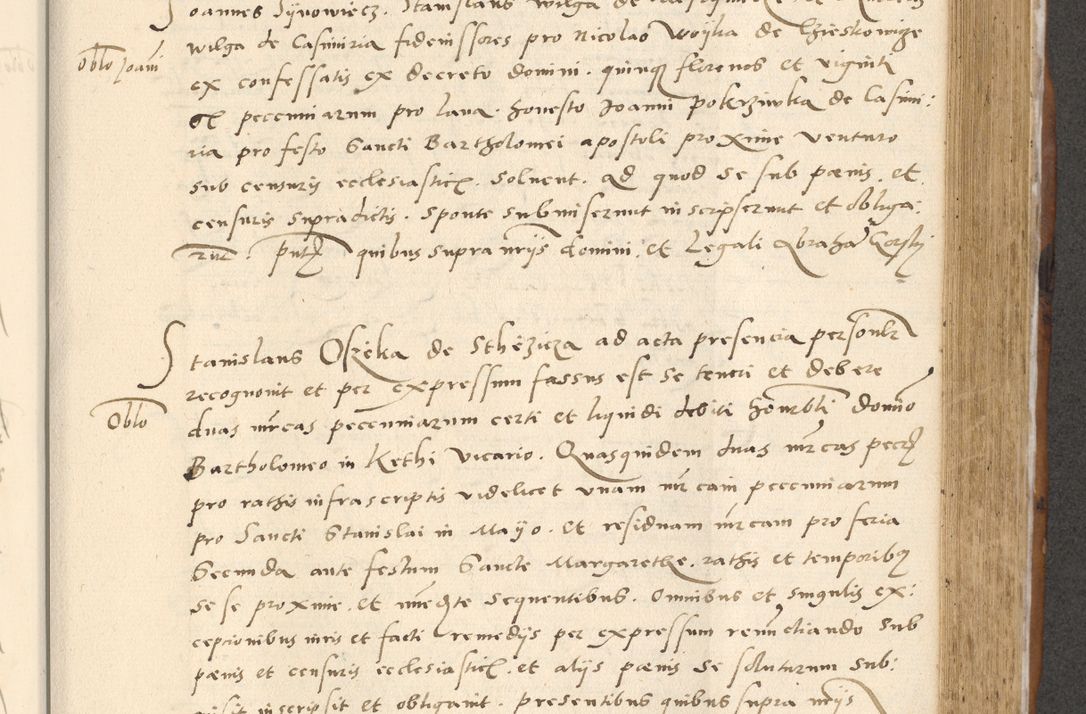 Joannes Sijnowiecz. Stanislaus Wilga de
Wilga de Casimiria fideiussores pro Nicolao Woijka de
Oblo Joani
ex confessatis ex decreto domini. quinq florenos et viginti
pecuniarum pro lana. honesto Joanni Pokrziwka de Casimi:
ria pro festo Sancti Bartholomei apostoli proxime venturo
sub censuris ecclesiastic. solvent. ad quod se sub penis. et
censuris supradictis. sponte submiserunt inscripserunt et obliga:
runt. pntz quibus supra nrijs domini. et Legali Abraha Gorskj
Stanislaus Oszeka de Sthezicza ad acta presencia personlr
recognouit et per expressum fassus est se teneri et debere
Oblo
duas mrcas pecuniarum certi et liquidi debiti honrbli domino
Bartholomeo in Kethi vicario. Quasquidem duas mrcas pecz
pro rathis infrascriptis videlicet vnam mrcam pecuniarum
pro Sancti Stanislai in Mayo. et residuam mrcam pro feria
Secunda ante festum Sancte Margarethe. rathis et temporibq
se se proxime. et imedte sequentibus. Omnibus et singulis ex:
ceptionibus iuris et facti remedijs per expressum renunctiando sub
penis et censuris ecclesiastic. et alijs penis se soluturum sub:
misit inscripsit et obligauit. presentibus quibus supra nrijs